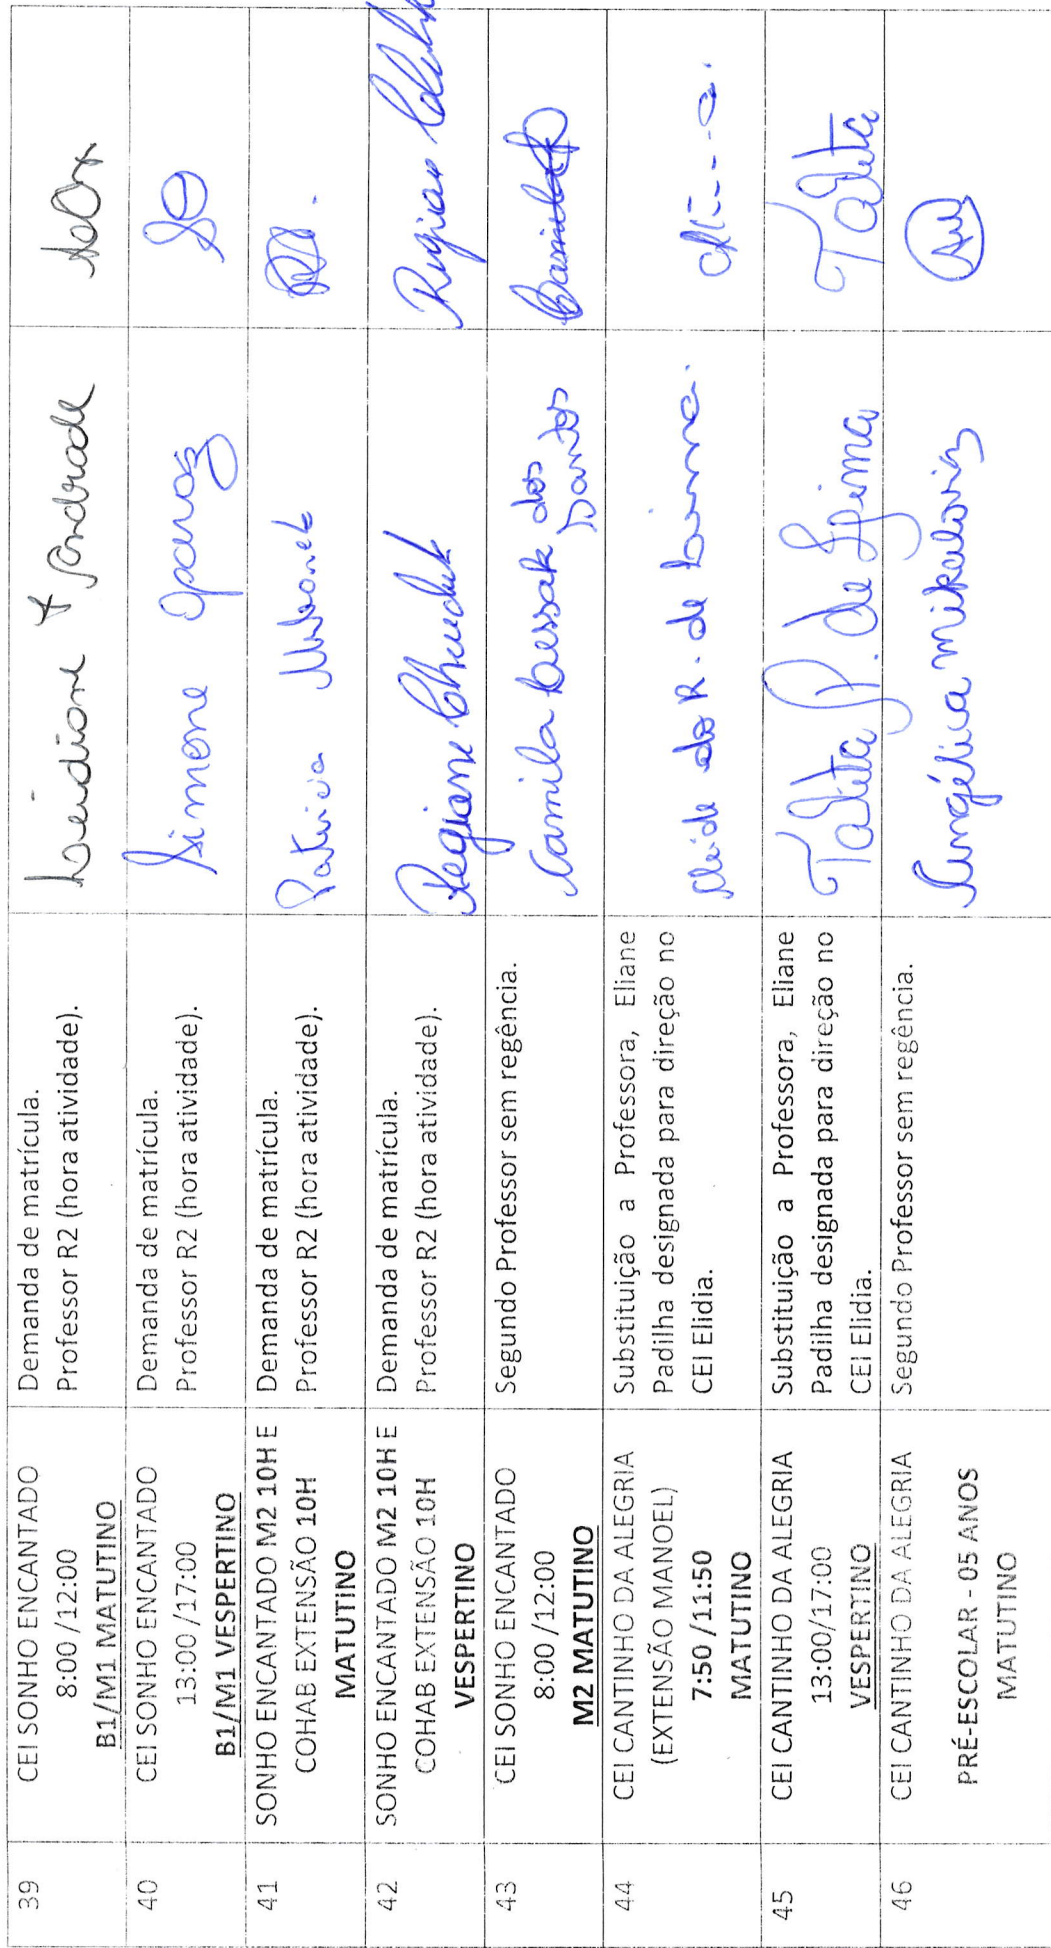 39
CEI SONHO ENCANTADO
8:00 /12:00
B1/M1 MATUTINO
Demanda de matrícula.
Professor R2 (hora atividade).
40
CEI SONHO ENCANTADO
13:00 /17:00
B1/M1 VESPERTINO
Demanda de matrícula.
Professor R2 (hora atividade).
Simone
41
SONHO ENCANTADO M2 10H E
COHAB EXTENSÃO 10H
MATUTINO
Demanda de matrícula.
Professor R2 (hora atividade).
Patricia
42
SONHO ENCANTADO M2 10H E
COHAB EXTENSÃO 10H
VESPERTINO
Demanda de matrícula.
Professor R2 (hora atividade).
Regiane
43
CEI SONHO ENCANTADO
8:00 /12:00
M2 MATUTINO
Segundo Professor sem regência.
Camila Kessak dos
Santos
Camila
44
CEI CANTINHO DA ALEGRIA
(EXTENSÃO MANOEL)
7:50 /11:50
MATUTINO
Substituição a Professora, Eliane
Padilha designada para direção no
CEI Elidia.
do R. de Lima.
45
CEI CANTINHO DA ALEGRIA
13:00/17:00
VESPERTINO
Substituição a Professora, Eliane
Padilha designada para direção no
CEI Elidia.
P. de Lima
46
CEI CANTINHO DA ALEGRIA
PRÉ-ESCOLAR - 05 ANOS
MATUTINO
Segundo Professor sem regência.
Angélica